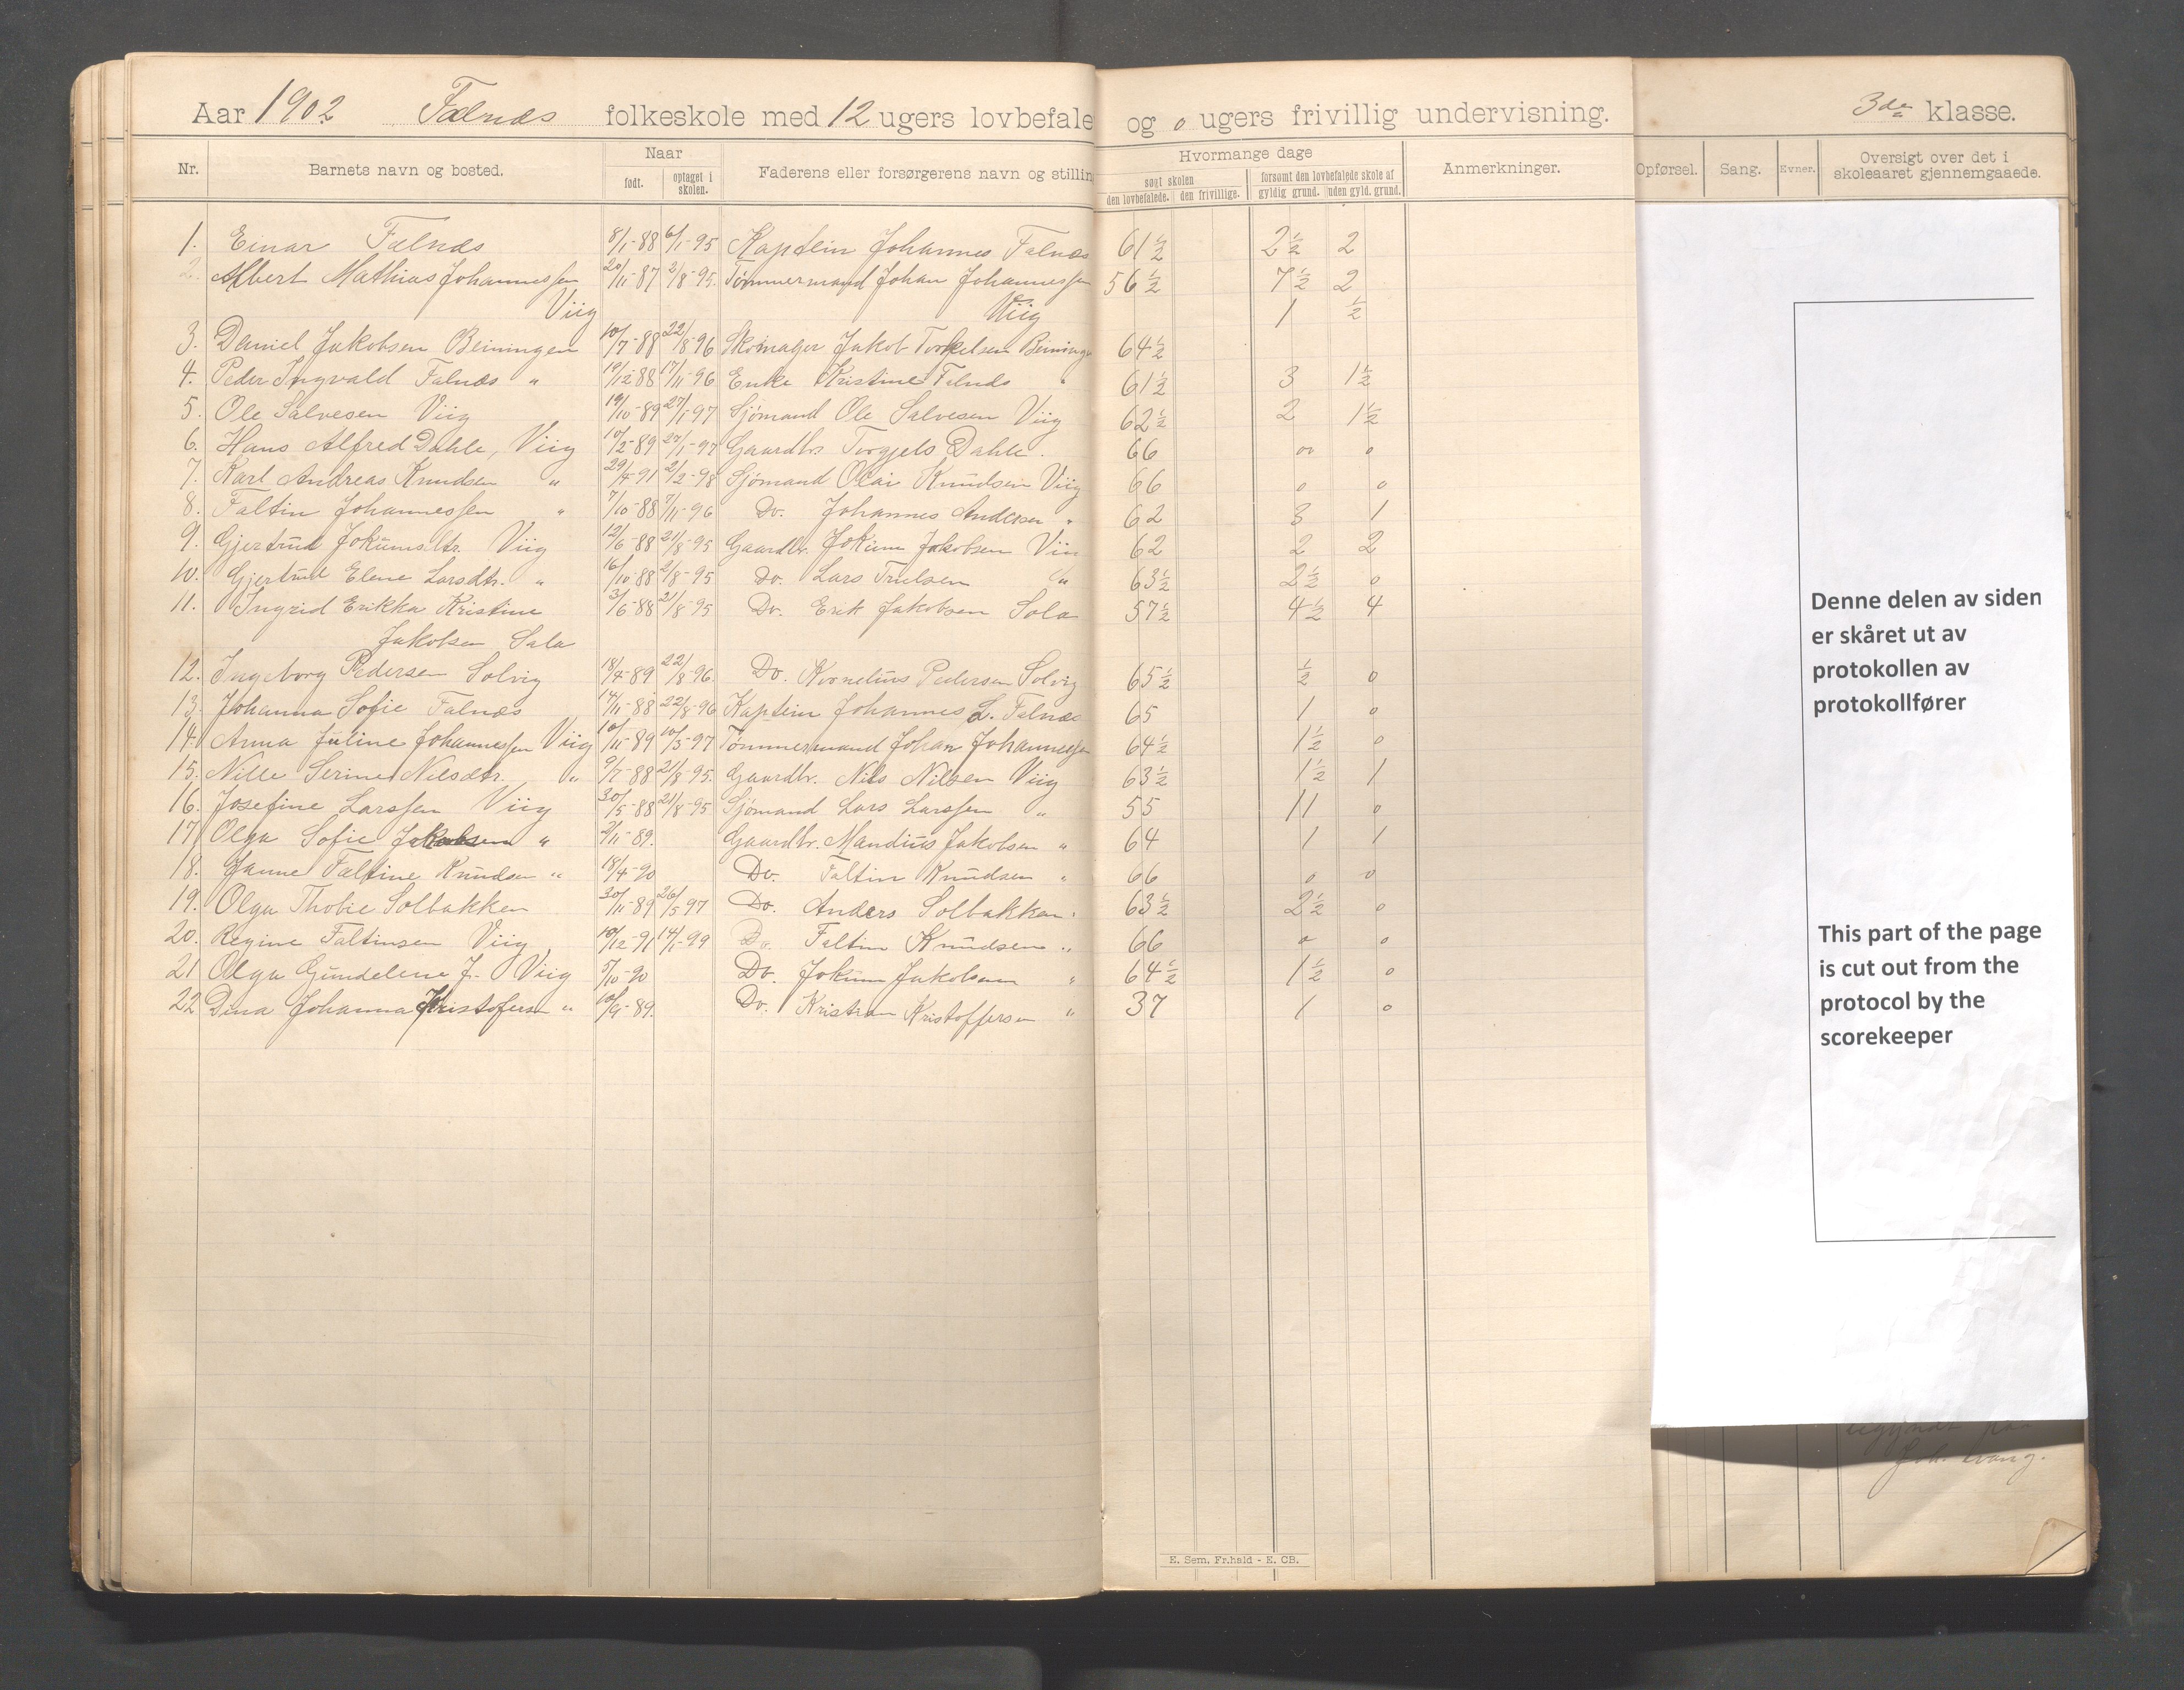 Aar 1902 Falnæs folkeskole med 12 ugers lovbefale og 0 ugers frivillig undervisning. 3de klasse.
Nr. Barnets navn og bosted. Naar født. optaget i skolen. Faderens eller forsørgerens navn og stillin Hvormange dage søgt skolen den lovbefalede. den frivillige. forsømt den lovbefalede skole af gyldig grund. uden gyld. grund. Anmerkninger. Opførsel. Sang. Evner. Oversigt over det i skoleaaret gjennemgaaede.
1. Einar Falnæs 8/1-88 6/1-95 Kaptein Johannes Falnæs 61½ 2½ 2
2. Albert Mathias Johannessen 20/11-87 2/8-95. Tømmermand Johan Johannessen 56½ 7½ 2
Viig Viig 1 ½
3. Daniel Jakobsen Beiningen 10/7-88 22/8-96 Skomager Jakob Torkelsen Beininge 64½
4. Peder Ingvald Falnæs " 19/12-88 17/11-96 Enke Kristine Falnæs " 61½ 3 1½
5. Ole Salvesen Viig 19/10-89 27/1-97 Sjømand Ole Salvesen Viig 62½ 2 1½
6. Hans Alfred Dahle, Viig 10/2-89 27/1-97 Gaardbr. Torgjels Dahle. 66 00 0
7. Karl Andreas Knudsen " 29/4-91 2/2-98 Sjømand Olai Knudsen Viig 66 0 0
8. Faltin Johannessen " 7/10-88 7/11-96 Do. Johannes Andersen " 62 3 1
9. Gjertrud Jokumsdtr. Viig 12/6-88 21/8-95 Gaardbr. Jokum Jakobsen Viig 62 2 2
10. Gjertrud Elene Larsdtr. " 16/10-88 2/8-95 Do. Lars Trulsen " 63½ 2½ 0
11. Ingrid Erikka Kristine 3/6-88 21/8-95 Do. Erik Jakobsen Sola 57½ 4½ 4
Jakobsen Sala
12. Ingeborg Pedersen Solvig 18/4-89 22/8-96. Do. Kornelius Pedersen Solvig 65½ ½ 0
13. Johanna Sofie Falnæs 14/11-88 22/8-96 Kaptein Johannes L. Falnæs 65 1 0
14. Anna Juline Johannessen Viig 10/11-89 10/3-97 Tømmermand Johan Johannessen 64½ 1½ 0
15. Nille Serine Nilsdtr. " 9/7-88 21/8-95. Gaardbr. Nils Nilsen Viig 63½ 1½ 1
16. Josefine Larssen Viig 30/5-88 21/8-95 Sjømand Lars Larssen " 55 11 0
17. Olga Sofie Jakobsen " 2/11-89. Gaardbr. Mandius Jakobsen " 64 1 1
18. Janne Faltine Knudsen " 18/4-90 Do. Faltin Knudsen " 66 0 0
19. Olga Thobie Solbakken 30/11-89 26/5 97 Do. Anders Solbakken. 63½ 2½ 0
20. Regine Faltinsen Viig 10/12-91 14/1-99 Do Faltin Knudsen " 66 0 0
21 Olga Gundelene J- Viig 5/10-90 Do. Jokum Jakobsen " 64½ 1½ 0
22 Dina Johanna Kristofersen " 10/9-89. Do. Kristian Kristoffersen " 37 1 0
Denne delen av siden
er skåret ut av
protokollen av
protokollfører
This part of the page
is cut out from the
protocol by the
scorekeeper
E. Sem. Fr.hald - E. CB.